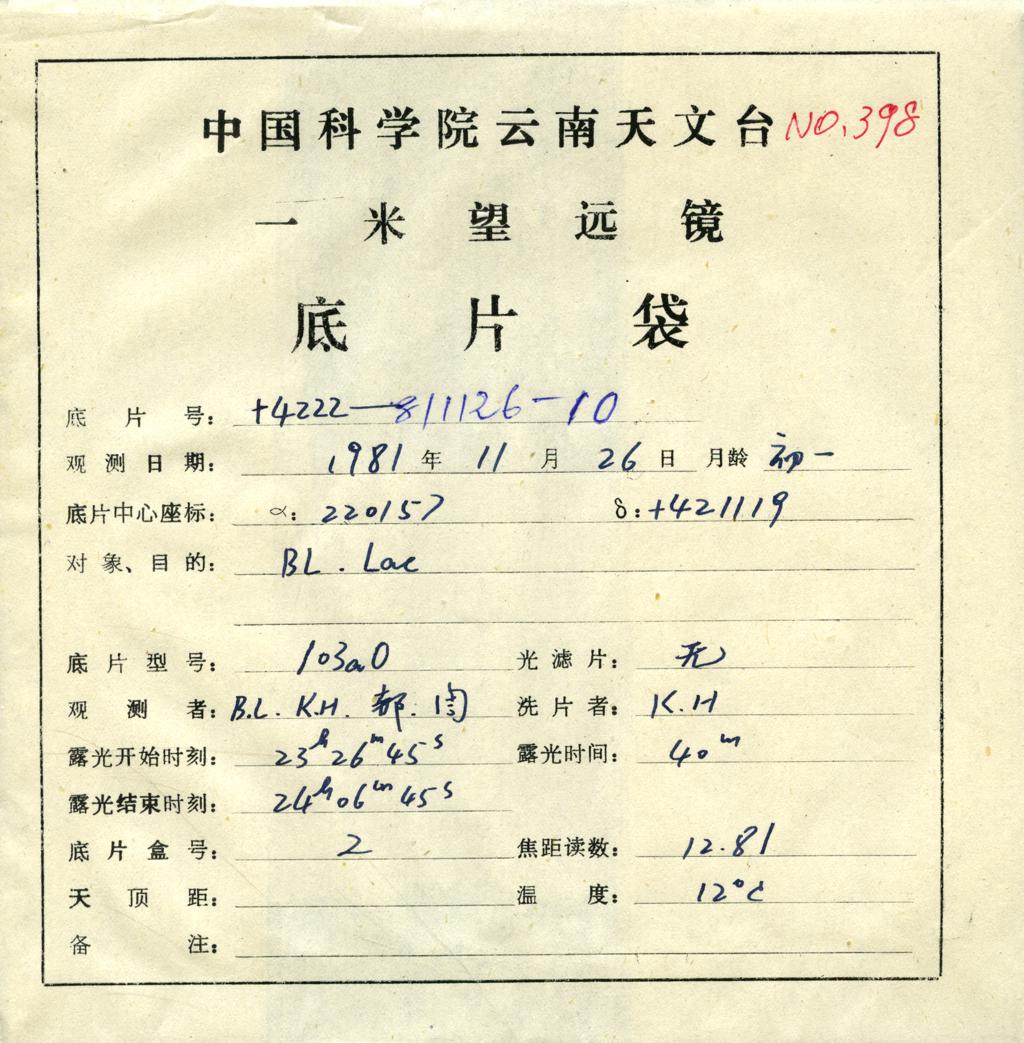 中国科学院云南天文台 NO.398
一米望远镜
底片袋
底片号： +4222—811126-10
观测日期： 1981 年 11 月 26 日 月龄 初一
底片中心座标： α： 220157 δ：+421119
对象、目的： BL. Lac
底片型号： 103aO 光滤片： 无
观测者： B.L. K.H. 郝. 周 洗片者： K.H
露光开始时刻： 23h26m45s 露光时间： 40m
露光结束时刻： 24h06m45s
底片盒号： 2 焦距读数： 12.81
天顶距： 温度： 12°C
备注：